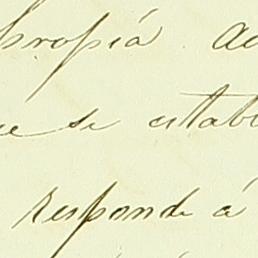 propiá a
se estab
responde á